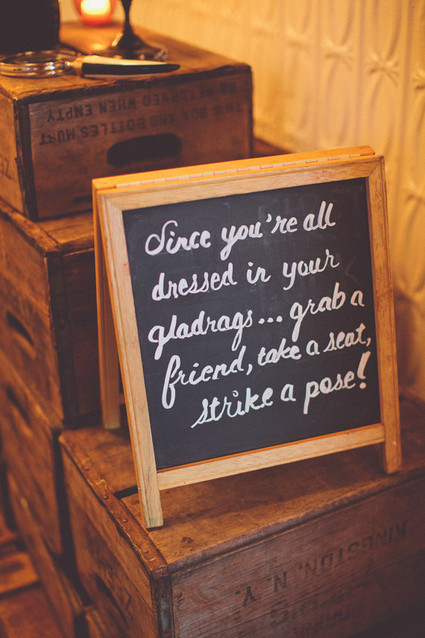 THIS BOX AND BOTTLES MUST
BE RETURNED WHEN EMPTY
Since you're all
dressed in your
gladrags... grab a
friend, take a seat,
strike a pose!
KINGSTON, N. Y.